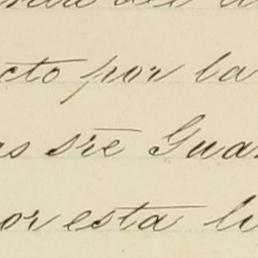 cto por la
as sre Gua
or esta li